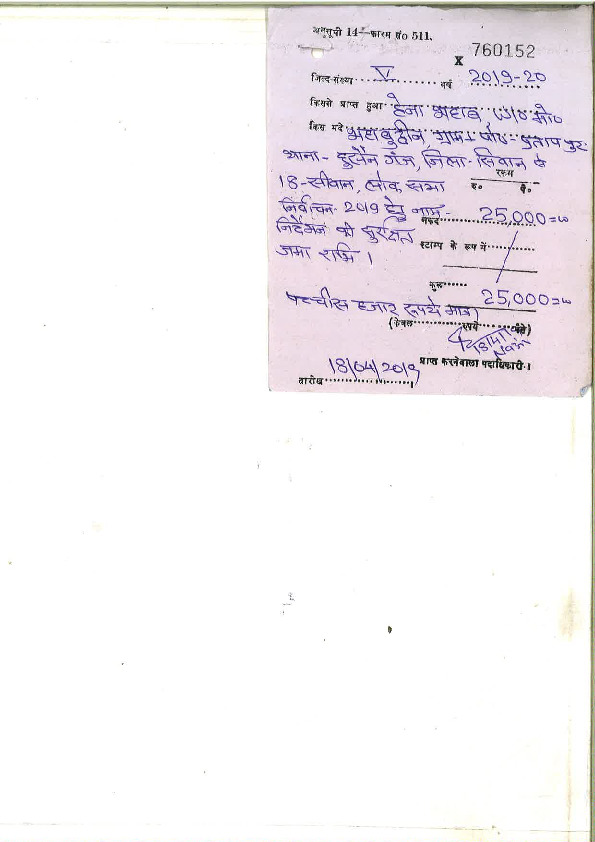 अनुसूची 14—फारम सं० 511.
X 760152
जिल्द-संख्या V वर्ष 2019-20
किससे प्राप्त हुआ हेना शहाब, W/o मो०
किस मदे शहाबुद्दीन, ग्राम+पो०-प्रतापपुर
थाना-हुसैन गंज, जिला-सिवान के
18-सीवान, लोक सभा रकम
रु० पै०
निर्वाचन-2019 हेतु नाम- नकद 25,000=00
निर्देशन की सुरक्षित स्टाम्प के रूप में
जमा राशि ।
कुल 25,000=00
पच्चीस हजार रूपये मात्र)
(केवल रुपये पैसे)
प्राप्त करनेवाला पदाधिकारी ।
तारीख 18/04/2019